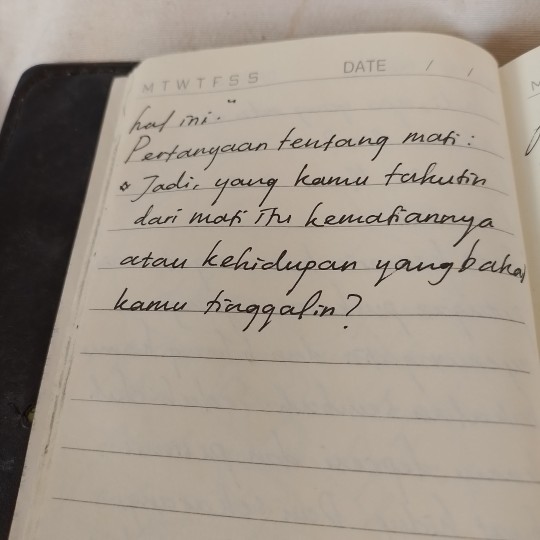 M T W T F S S DATE / /
hal ini."
Pertanyaan tentang mati :
Jadi, yang kamu takutin
dari mati itu kematiannya
atau kehidupan yang bakal
kamu tinggalin?